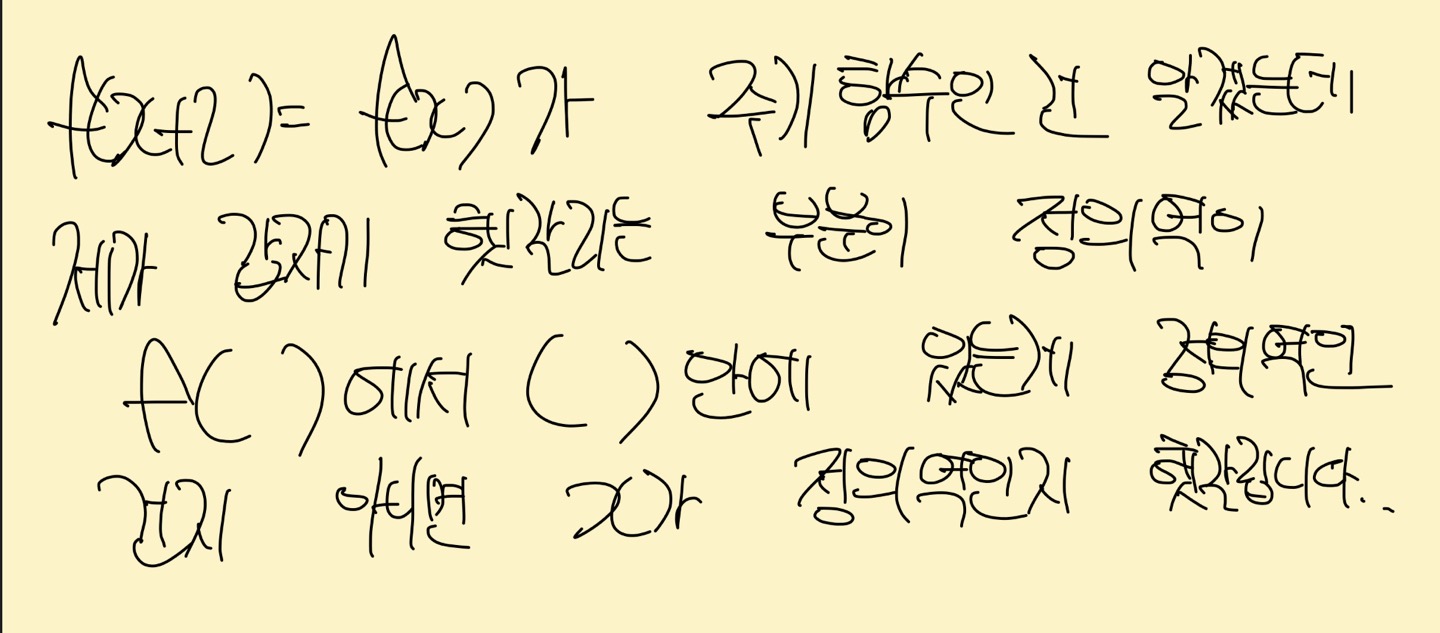 f(x+2)= f(x)가 주기함수인 건 알겠는데
제가 갑자기 헷갈리는 부분이 정의역이
f( )에서 ( )안에 있는게 정의역인
건지 아니면 x가 정의역인지 헷갈립니다..